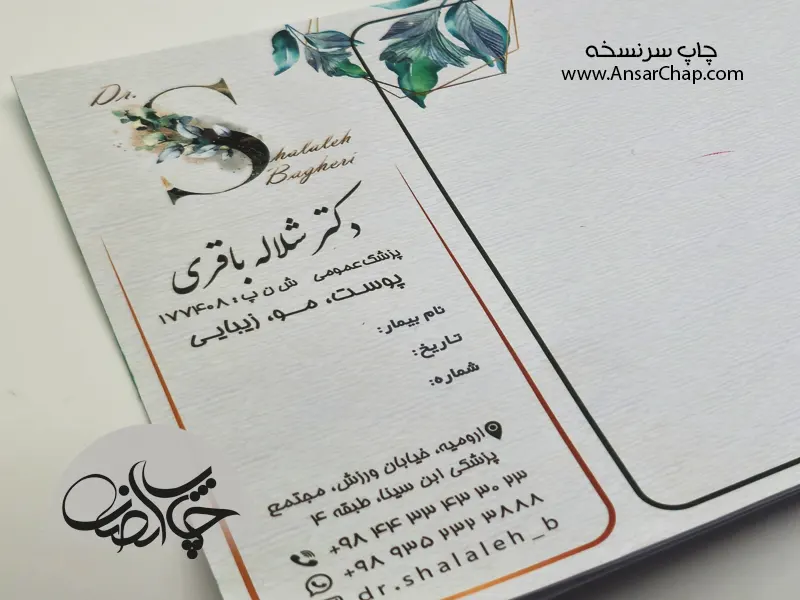 چاپ سرنسخه
www.AnsarChap.com
Dr.
Shalaleh
Bagheri
دکتر شلاله باقری
پزشک عمومی ش ن پ: ۱۷۷۴۰۸
پوست، مو، زیبایی
نام بیمار:
تاریخ:
شماره:
ارومیه، خیابان ورزش، مجتمع
پزشکی ابن سینا، طبقه ۴
+۹۸ ۴۴ ۳۳ ۴۳ ۳۰ ۲۳
+۹۸ ۹۳۵ ۲۳۲ ۳۸۸۸
dr.shalaleh_b
چاپ انصار